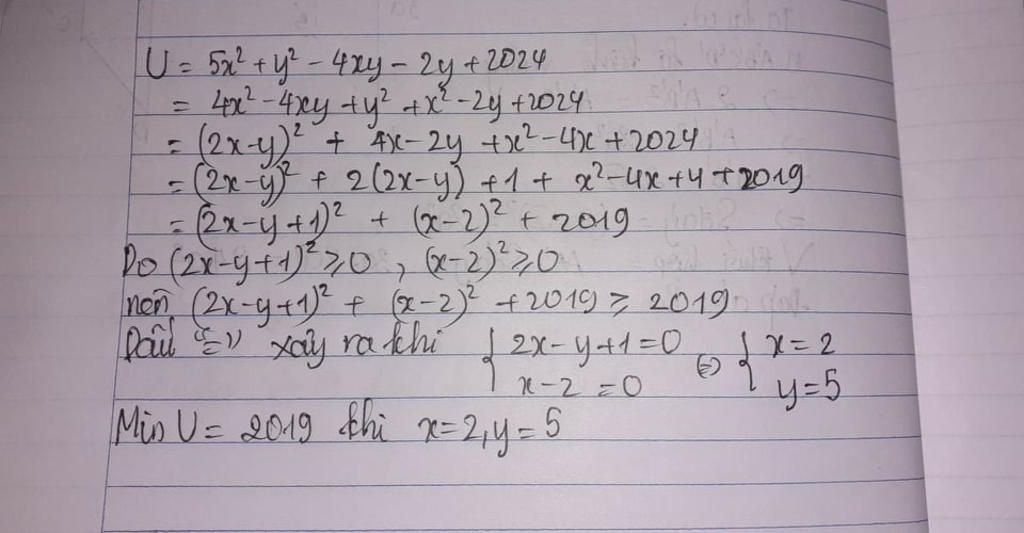 U = 5x² + y² - 4xy - 2y + 2024
= 4x² - 4xy + y² + x² - 2y + 2024
= (2x-y)² + 4x - 2y + x² - 4x + 2024
= (2x-y)² + 2(2x-y) + 1 + x² - 4x + 4 + 2019
= (2x-y+1)² + (x-2)² + 2019
Do (2x-y+1)² ≥ 0, (x-2)² ≥ 0
nên (2x-y+1)² + (x-2)² + 2019 ≥ 2019
Dấu "=" xảy ra khi { 2x-y+1=0 ⇔ { x=2
x-2 =0 y=5
Min U = 2019 khi x=2, y=5